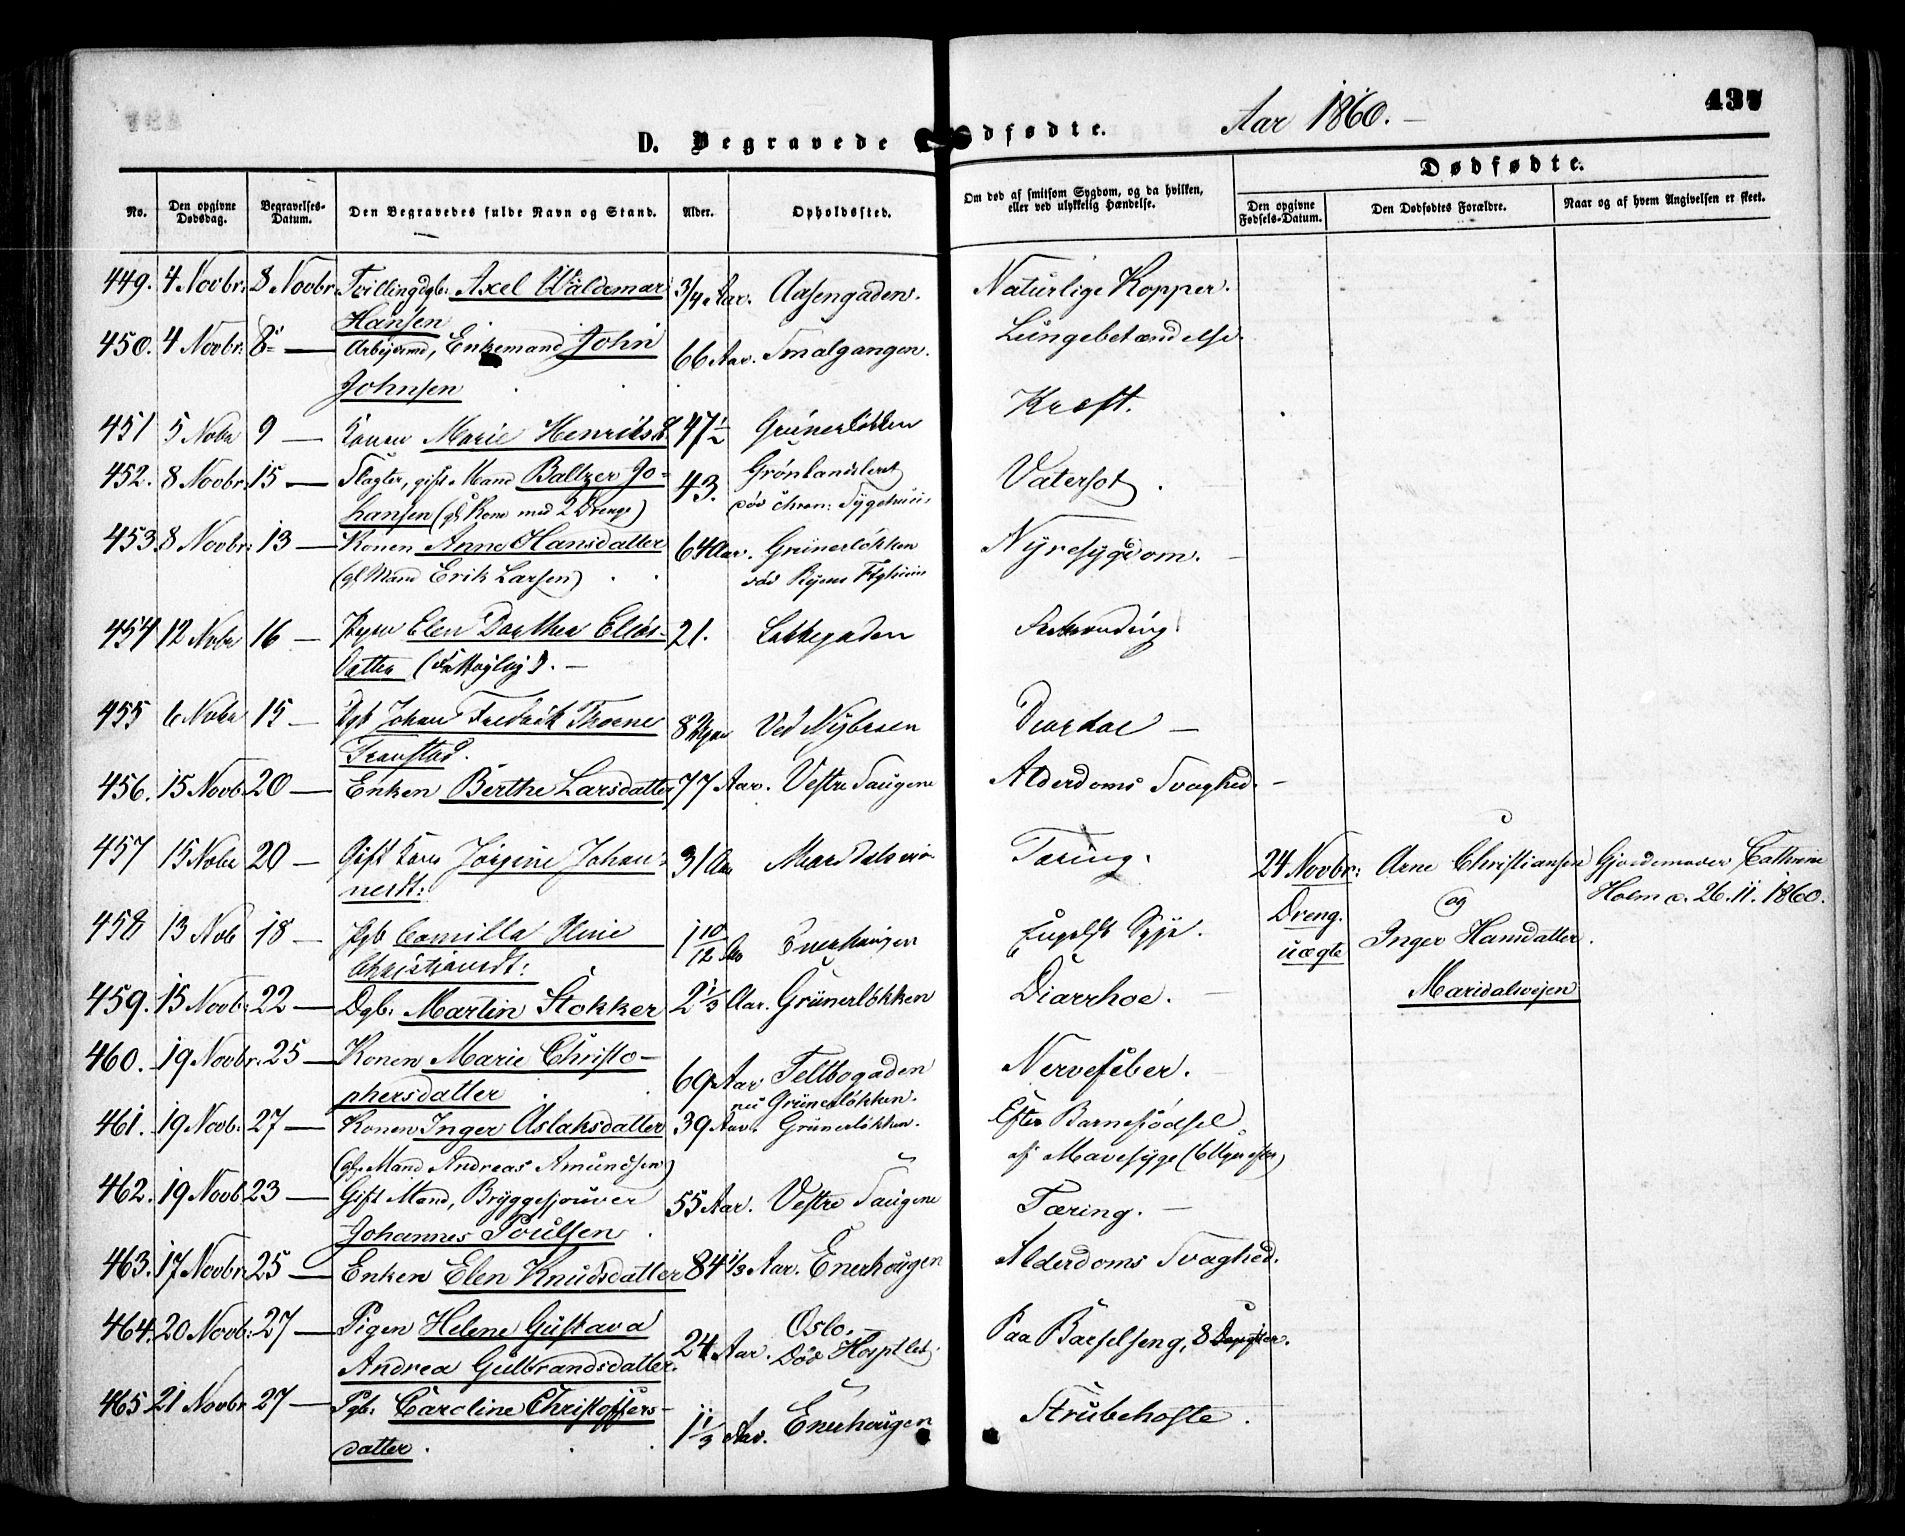 Aar 1860.
437
D. Begravede og Dødfødte.
No.
Den opgivne Dødsdag.
Begravelses-Datum.
Den Begravedes fulde Navn og Stand.
Alder.
Opholdssted.
Om død af smitsom Sygdom, og da hvilken, eller ved ulykkelig Hændelse.
Dødfødte.
Den opgivne Fødsels-Datum.
Den Dødfødtes Forældre.
Naar og af hvem Angivelsen er skeet.
449. 4 Novbr: 8 Novbr Tvillingdgb: Axel Waldemar 3/4 Aar. Aasengaden. Naturlige Kopper.
Hansen
450. 4 Novbr: 8 — Arbejdsmd, Enkemand John 66 Aar. Smalgangen. Lungebetændelse.
Johnsen
451 5 Nobr 9 — Konen Marie Henriksd. 47 1/2 Grünerløkken Kræft.
452. 8 Novbr: 15 — Slagter, gift Mand Baltzer Jo- 43. Grønlandsleret Vatersot.
hansen (gl. Kone med 2 Drenge) død Chron: Sygehuus
453 8 Novbr: 13 — Konen Anne Hansdatter 64 Aar. Grünerløkken Nyresygdom. —
(gl. Mand Erik Larsen) død Byens Sygehuus
454 12 Nobr 16 — Pigen Elen Dorthea Elias- 21. Lakkegaden
datter —
455 6 Nobr 15 — Dgb Johan Fredrik Thorne 8 Uger Ved Nybroen Diarrhoe —
Transtad.
456. 15 Novb: 20 — Enken Berthe Larsdatter 77 Aar. Vestre Haugene Alderdoms Svaghed. —
457 15 Nobr 20 — Gift Kone Jørgine Johan- 31 Aar Maridalsveien Tæring.
nesdt:
24 Novbr: Arne Christiansen Gjordemoder Cathrine
Dreng. og Holm d. 26. 11. 1860.
uægte Inger Hansdatter.
Maridalsvejen
458 13 Nob 18 — Pgb Camilla Oline 1 10/12 Aar Enerhaugen Engelsk Syge.
Christiansdt:
459. 15 Novb: 22 — Dgb: Martin Stokker 2 1/3 Aar. Grünerløkken Diarrhoe. —
460. 19 Novbr: 25 — Konen Marie Christo- 69 Aar Teltbogaden Nervefeber.
phersdatter nu Grünerløkken.
461. 19 Novb: 27 — Konen Inger Aslaksdatter 39 Aar. Grünerløkken. Efter Barnefødsel
(gl. Mand Andreas Amundsen) af Mavesyge (6 Uger efter)
462. 19 Novb. 23 — Gift Mand, Bryggesjouver 55 Aar. Vestre Haugene Tæring. —
Johannes Poulsen
463. 17 Novbr. 25 — Enken Elen Knudsdatter 84 1/3 Aar. Enerhougen Alderdoms Svaghed.
464. 20 Novb: 27 — Pigen Helene Gustava 24 Aar. Oslo. Paa Barselseng, 8 Dage efter.
Andrea Gulbrandsdatter. Død Hospitlet.
465 21 Novbr 27 — Pgb: Caroline Christoffers- 1 1/3 Aar. Enerhougen Strubehoste.
datter.